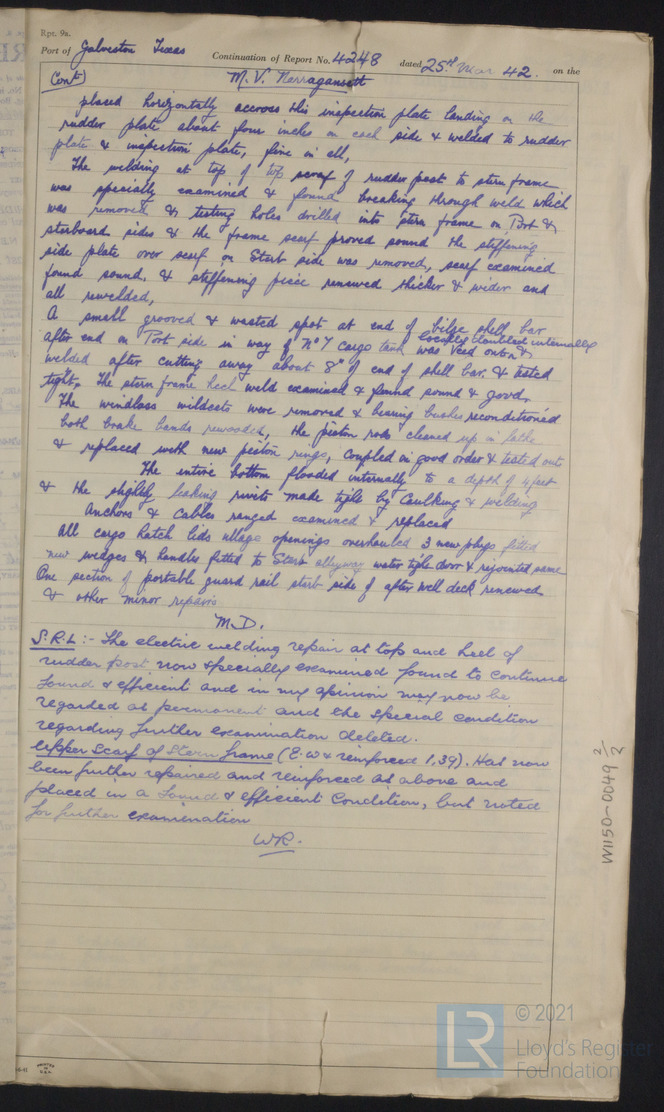 Rpt. 9a.
Port of Galveston Texas Continuation of Report No. 4248 dated 25th Mar 42. on the
(Cont) M.V. Narragansett
placed horizontally accross this inspection plate landing on the
rudder plate about four inches on each side & welded to rudder
plate & inspection plate, five in all,
The welding at top of top scarf of rudder post to stern frame
was specially examined & found breaking through weld which
was removed & testing holes drilled into stern frame on Port &
starboard sides & the frame scarf proved sound the stiffening
side plate over scarf on Starb side was removed, scarf examined
found sound. & stiffening piece renewed thicker & wider and
all rewelded,
A small grooved & wasted spot at end of bilge shell bar
after end on Port side in way of No 7 cargo tank was Veed out & locally doubled internally
welded after cutting away about 8" of end of shell bar. & tested
tight. The stern frame heel weld examined & found sound & good.
The windlass wildcats were removed & bearing bushes reconditioned
both brake bands rewooded, the piston rods cleaned up in lathe
& replaced with new piston rings, coupled in good order & tested out
The entire bottom flooded internally to a depth of 4 feet
& the slightly leaking rivets made tight by Caulking & welding
Anchors & Cables ranged examined & replaced
All cargo hatch lids ullage openings overhauled 3 new plugs fitted
new wedges & handles fitted to Starb alleyway water tight door & rejointed same
One section of portable guard rail starb side of after well deck renewed
& other minor repairs
M.D.
S.R.L :- The electric welding repair at top and heel of
rudder post now specially examined found to continue
sound & efficient and in my opinion may now be
regarded as permanent and the special condition
regarding further examination deleted.
Upper Scarf of Stern frame (E.W & reinforced 1,39). Has now
been further repaired and reinforced as above and
placed in a sound & efficient Condition, but noted
for further examination
WR.
W1150-0049 2/2
PRINTED IN U.S.A.
© 2021
Lloyd's Register
Foundation